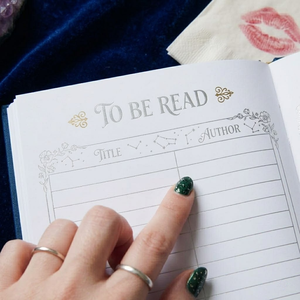 TO BE READ
TITLE AUTHOR